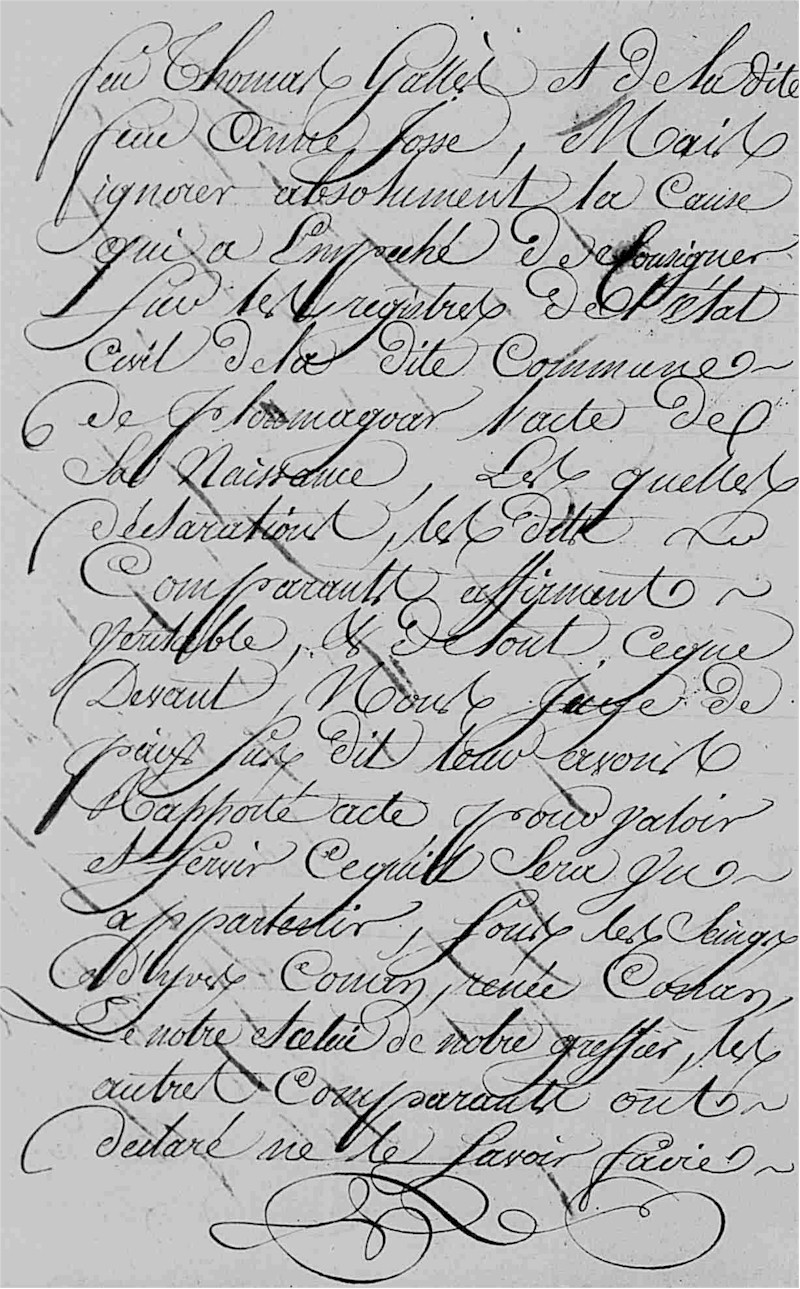 feu Thomas Gallès et de la dite
feue Anne Josse, Mais
ignorer absolument la Cause
qui a Empeché De Consigner
sur les registres De l'état
Civil De la dite Commune
de ploumagoar l'acte De
Sa Naissance, Les quelles
déclarations, les dits
Comparants affirment
véritable, & De tout ceque
Devant, Nous Juge de
paix susdit leur avons
Rapporté acte pour valoir
et servir Cequ'il Sera Vu
appartenir, sous les Seings
d'Yves Conan, renée Conan,
Le notre et celui de notre greffier, les
autres Comparants ont
declaré ne le savoir faire